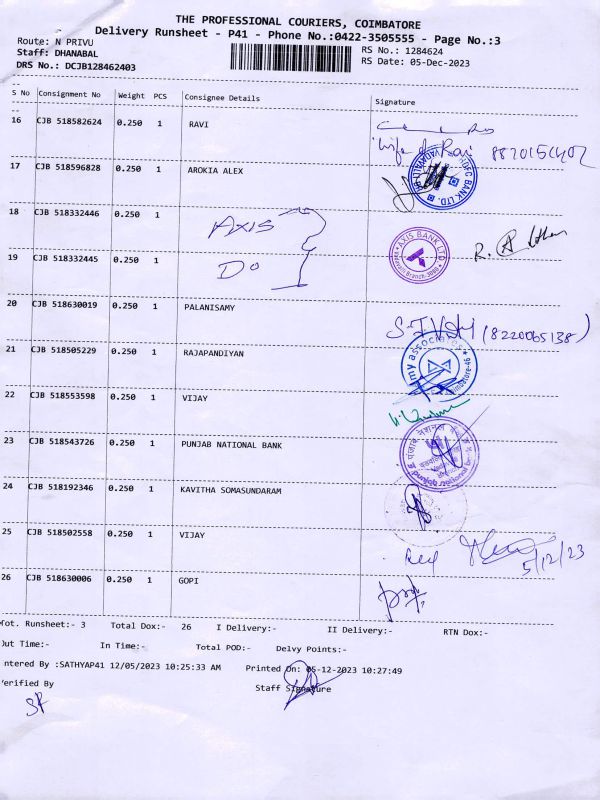 THE PROFESSIONAL COURIERS, COIMBATORE
Delivery Runsheet - P41 - Phone No.:0422-3505555 - Page No.:3
Route: N PRIVU
Staff: DHANABAL
DRS No.: DCJB128462403
RS No.: 1284624
RS Date: 05-Dec-2023
S No Consignment No Weight PCS Consignee Details Signature
16 CJB 518582624 0.250 1 RAVI
Wife of Ravi
17 CJB 518596828 0.250 1 AROKIA ALEX
IDFC BANK LTD.
18 CJB 518332446 0.250 1 AXIS
AXIS BANK LTD.
19 CJB 518332445 0.250 1 DO
20 CJB 518630019 0.250 1 PALANISAMY
(8220065138)
21 CJB 518505229 0.250 1 RAJAPANDIYAN
my associates
22 CJB 518553598 0.250 1 VIJAY
23 CJB 518543726 0.250 1 PUNJAB NATIONAL BANK
24 CJB 518192346 0.250 1 KAVITHA SOMASUNDARAM
25 CJB 518502558 0.250 1 VIJAY
5/12/23
26 CJB 518630006 0.250 1 GOPI
Tot. Runsheet:- 3 Total Dox:- 26 I Delivery:- II Delivery:- RTN Dox:-
Out Time:- In Time:- Total POD:- Delvy Points:-
ntered By :SATHYAP41 12/05/2023 10:25:33 AM Printed On: 05-12-2023 10:27:49
Verified By Staff Signature